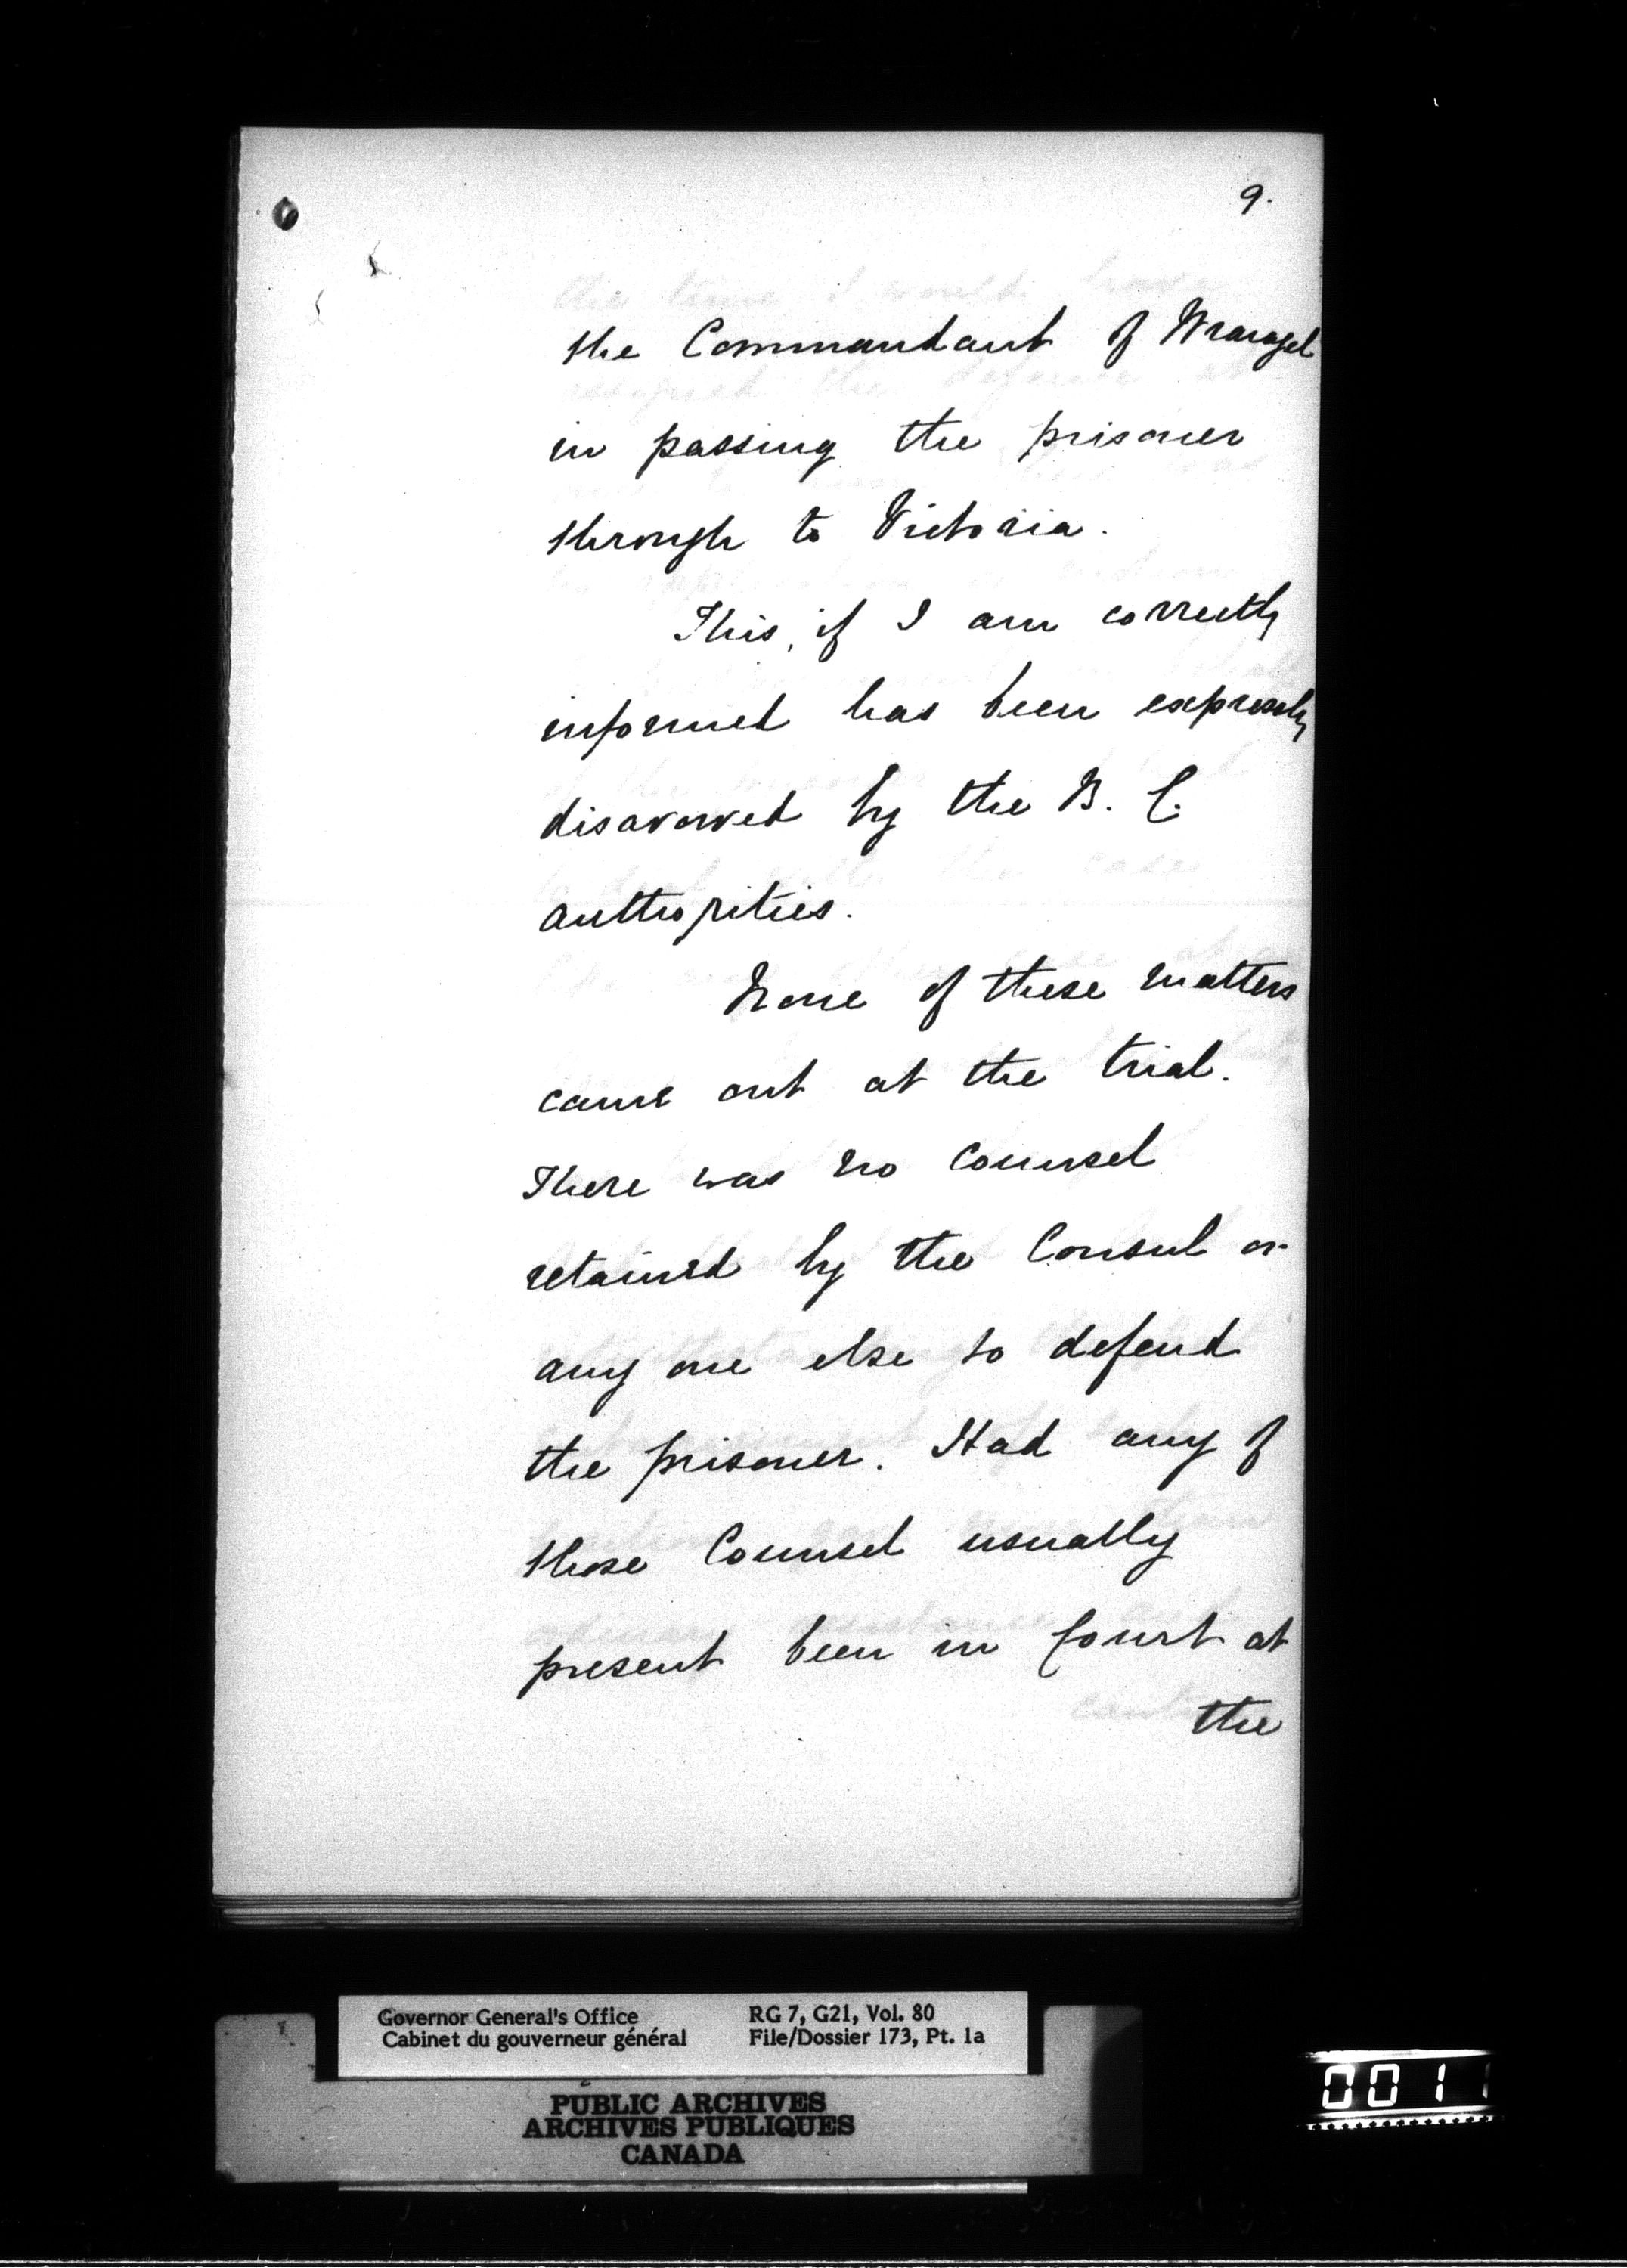 9.
the Commandant of Wrangel
in passing the prisoner
through to Victoria.
This, if I am correctly
informed has been expressly
disavowed by the B. C.
authorities.
None of these matters
came out at the trial.
There was no Counsel
retained by the Consul or
any one else to defend
the prisoner. Had any of
those Counsel usually
present been in Court at
the
Governor General's Office RG 7, G21, Vol. 80
Cabinet du gouverneur général File/Dossier 173, Pt. 1a
PUBLIC ARCHIVES
ARCHIVES PUBLIQUES
CANADA
0011